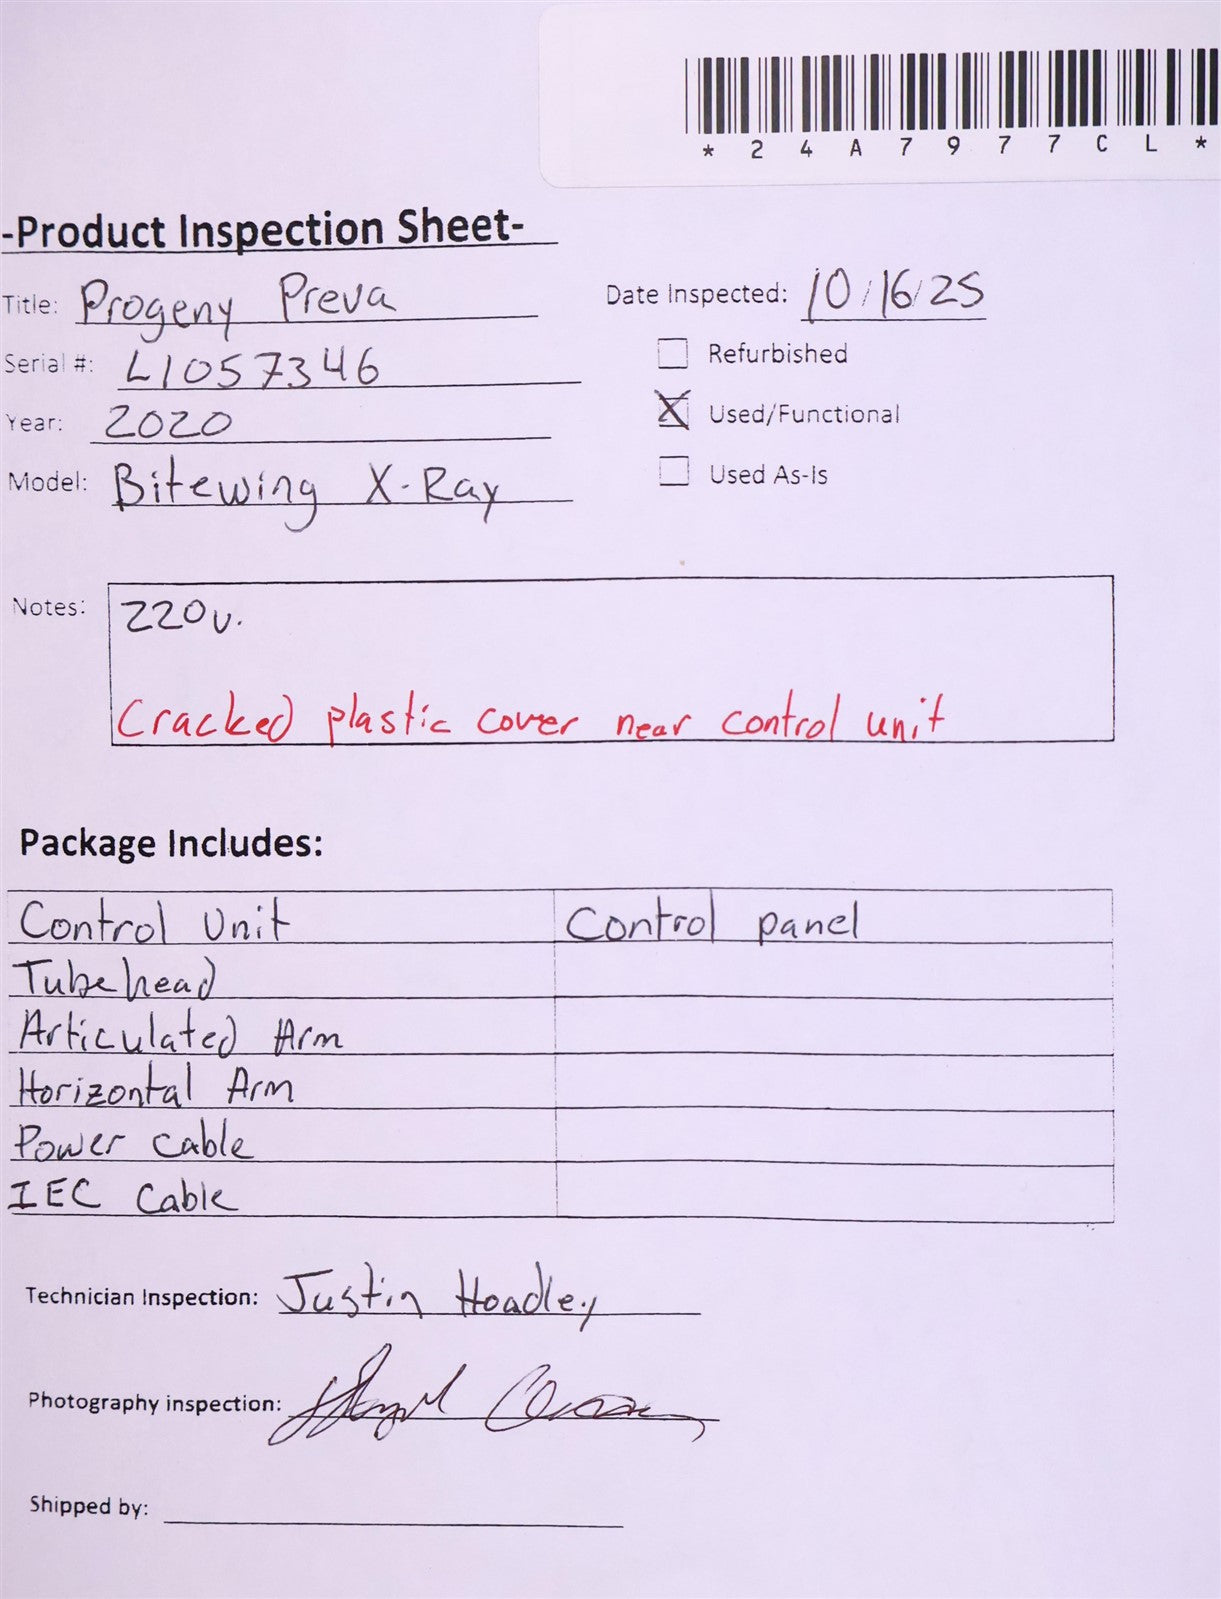 *24A7977CL*
-Product Inspection Sheet-
Title: Progeny Preva
Date Inspected: 10/16/25
Serial #: L1057346
Refurbished
Year: 2020
X Used/Functional
Model: Bitewing X-Ray
Used As-Is
Notes: 220v.
Cracked plastic cover near control unit
Package Includes:
Control Unit Control panel
Tubehead
Articulated Arm
Horizontal Arm
Power cable
IEC Cable
Technician Inspection: Justin Hoadley
Photography inspection:
Shipped by: